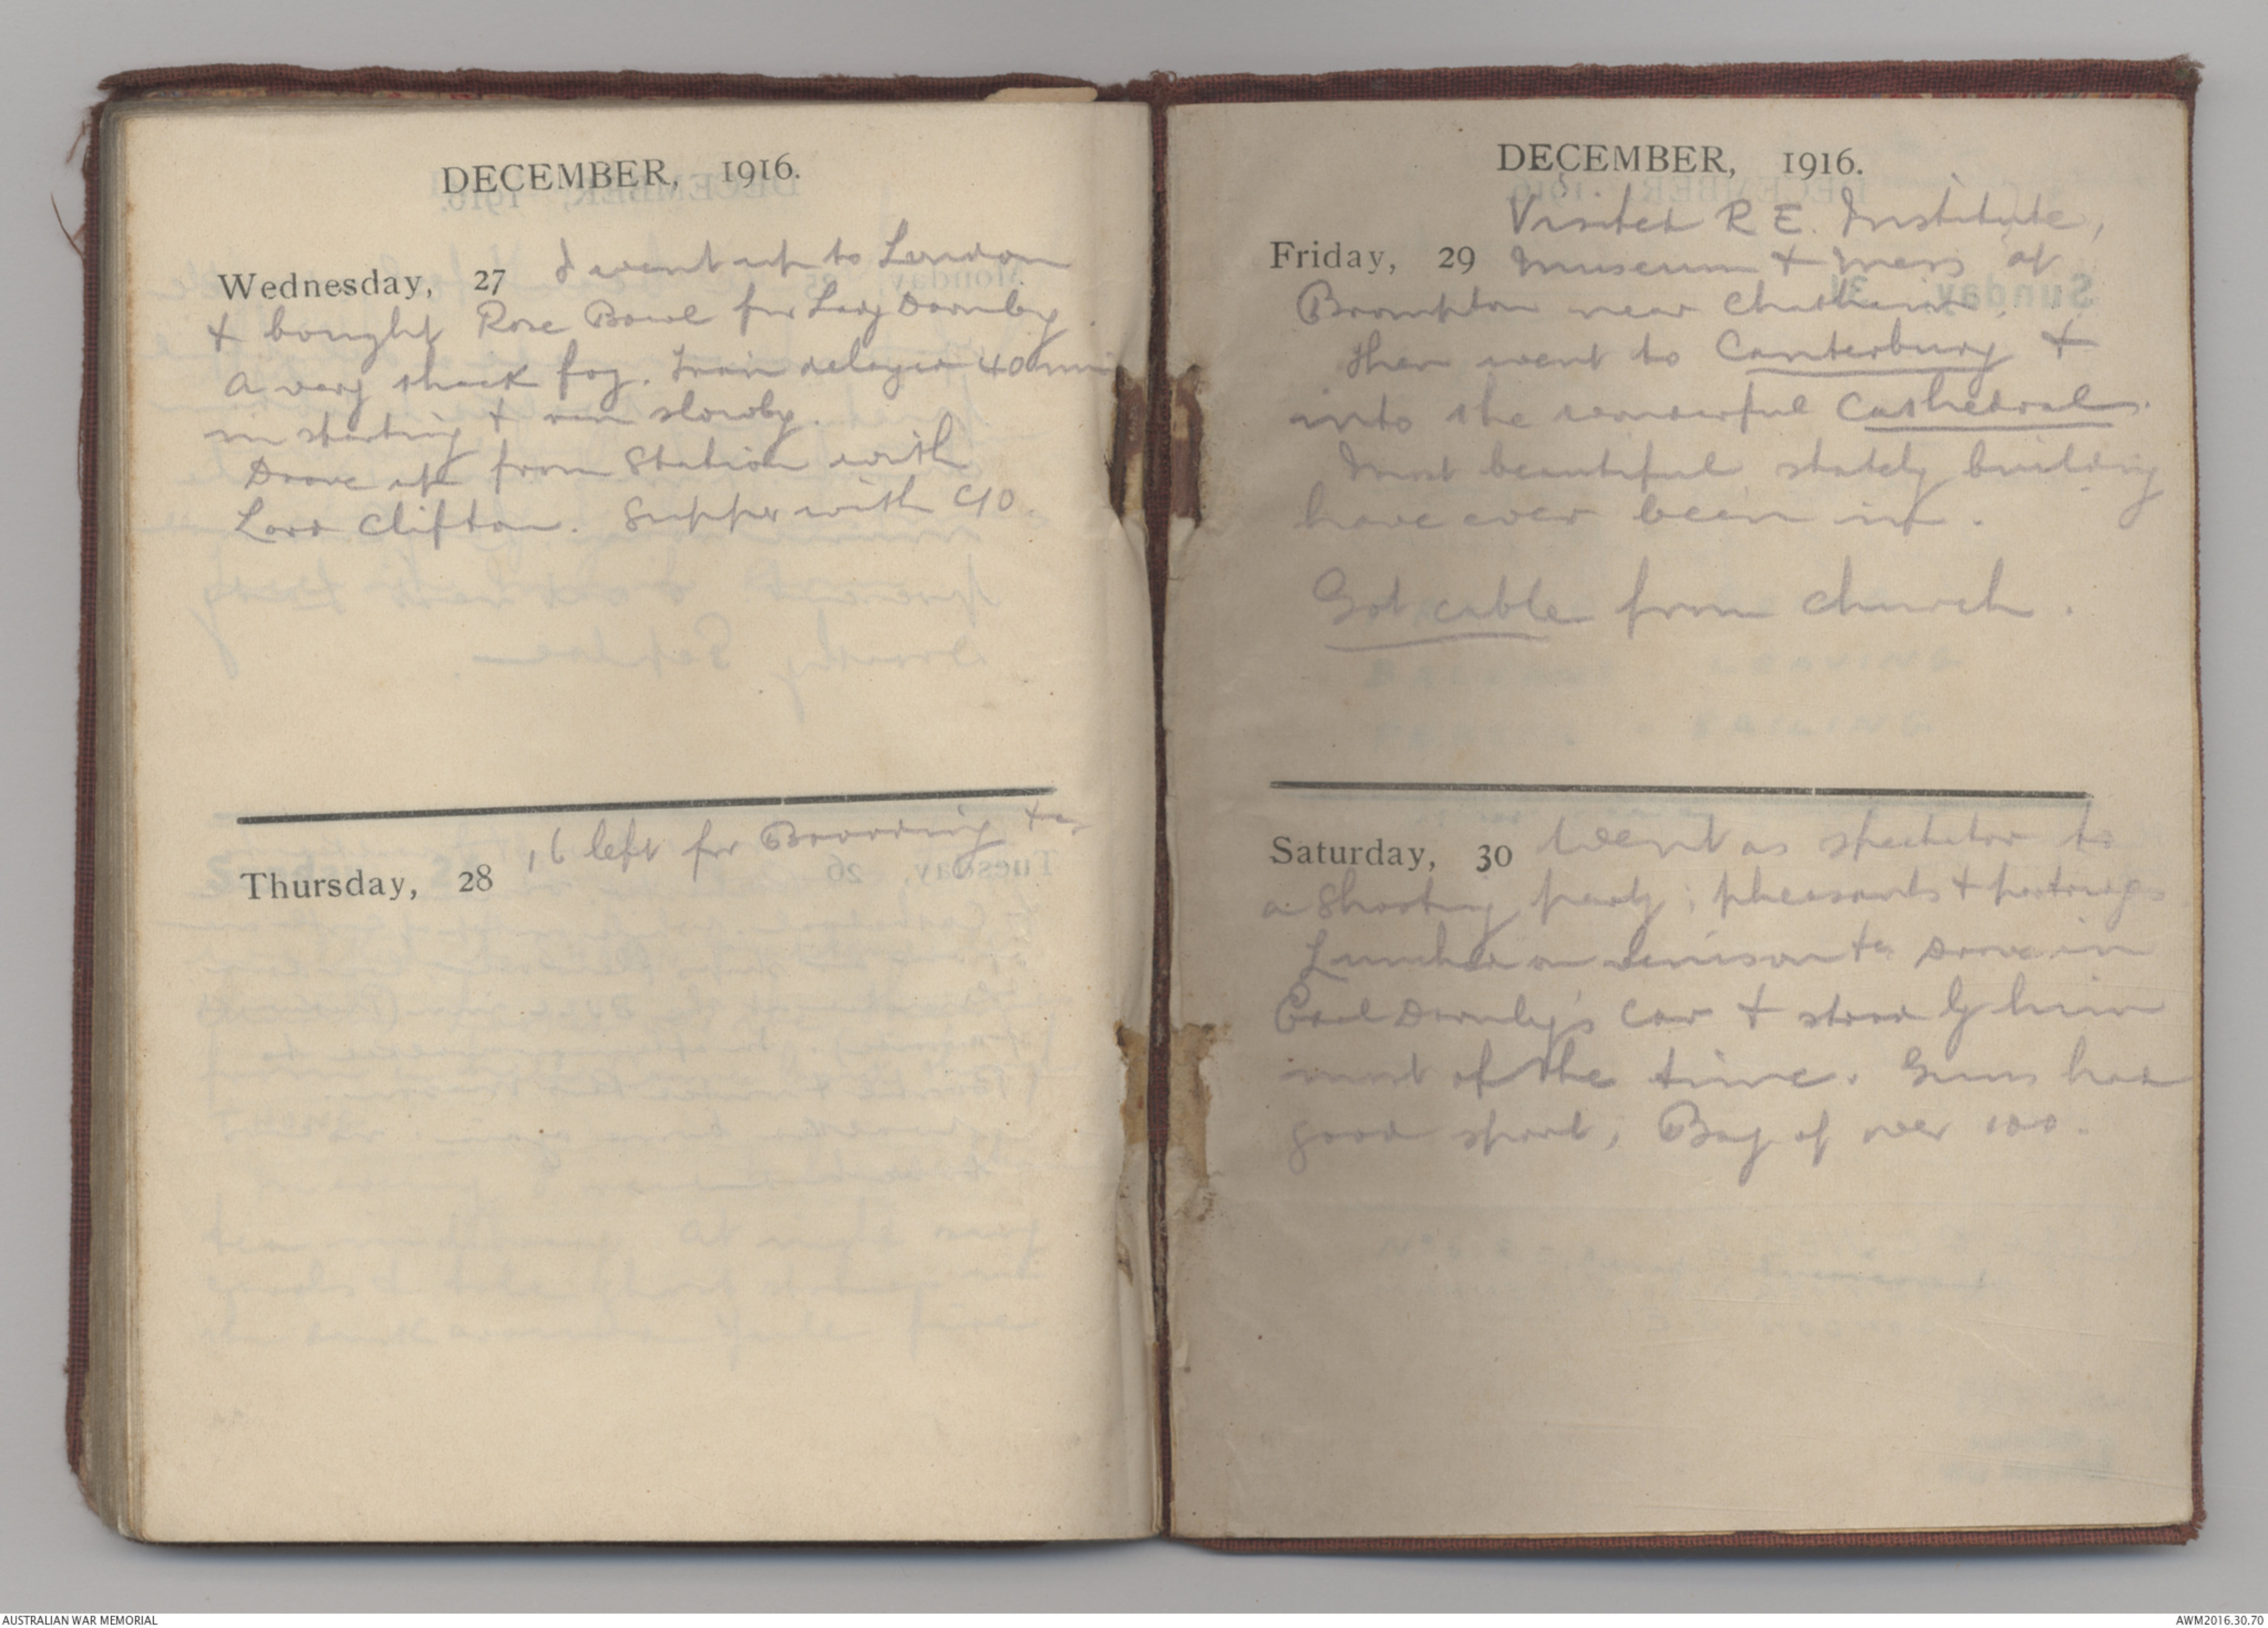 DECEMBER, 1916.
Wednesday, 27 I went up to London
+ bought Rose Bowl for Lady Darnley.
A very thick fog. Train delayed 40 min
in starting + ran slowly.
Drove up from Station with
Lord Clifton. Supper with
Thursday, 28 16 left for
DECEMBER, 1916.
Visited R E. Institute,
Friday, 29 Museum + Mess at
Brompton near Chatham.
Then went to Canterbury +
into the wonderful Cathedral.
Most beautiful stately building
have ever been in.
Got cable from church.
Saturday, 30 Went as spectator to
a Shooting party; pheasants + partridges
Luncheon Drove in
Earl Darnley's Car + stood by him
most of the time. Guns had
good sport, Bag of over 100.
AUSTRALIAN WAR MEMORIAL
AWM2016.30.70